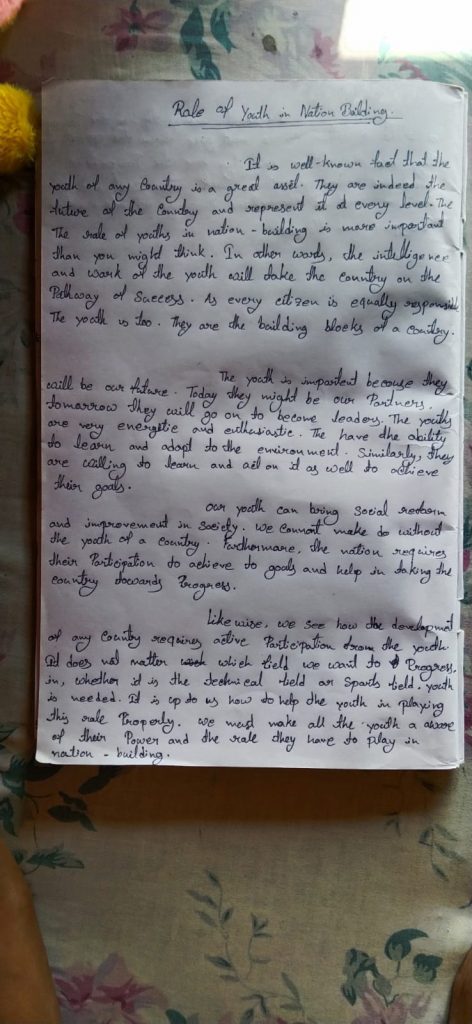 Role of Youth in Nation Building.
It is well-known fact that the
youth of any Country is a great asset. They are indeed the
future of the Country and represent it at every level. The
The role of youths in nation-building is more important
than you might think. In other words, the intelligence
and work of the youth will take the country on the
Pathway of Success. As every citizen is equally responsible
The youth is too. They are the building blocks of a country.
The youth is important because they
will be our future. Today they might be our Partners,
tomorrow they will go on to become leaders. The youths
are very energetic and enthusiastic. The have the ability
to learn and adapt to the environment. Similarly, they
are willing to learn and act on it as well to achieve
their goals.
Our youth can bring social reform
and improvement in society. We cannot make do without
the youth of a country. Furthermore, the nation requires
their Participation to achieve to goals and help in taking the
country towards Progress.
Likewise, we see how the development
of any country requires active Participation from the youth.
It does not matter which field we want to Progress.
in, whether it is the technical field or Sports field. youth
is needed. It is up to us how to help the youth in playing
this role Properly. we must make all the youth a aware
of their Power and the role they have to play in
nation - building.